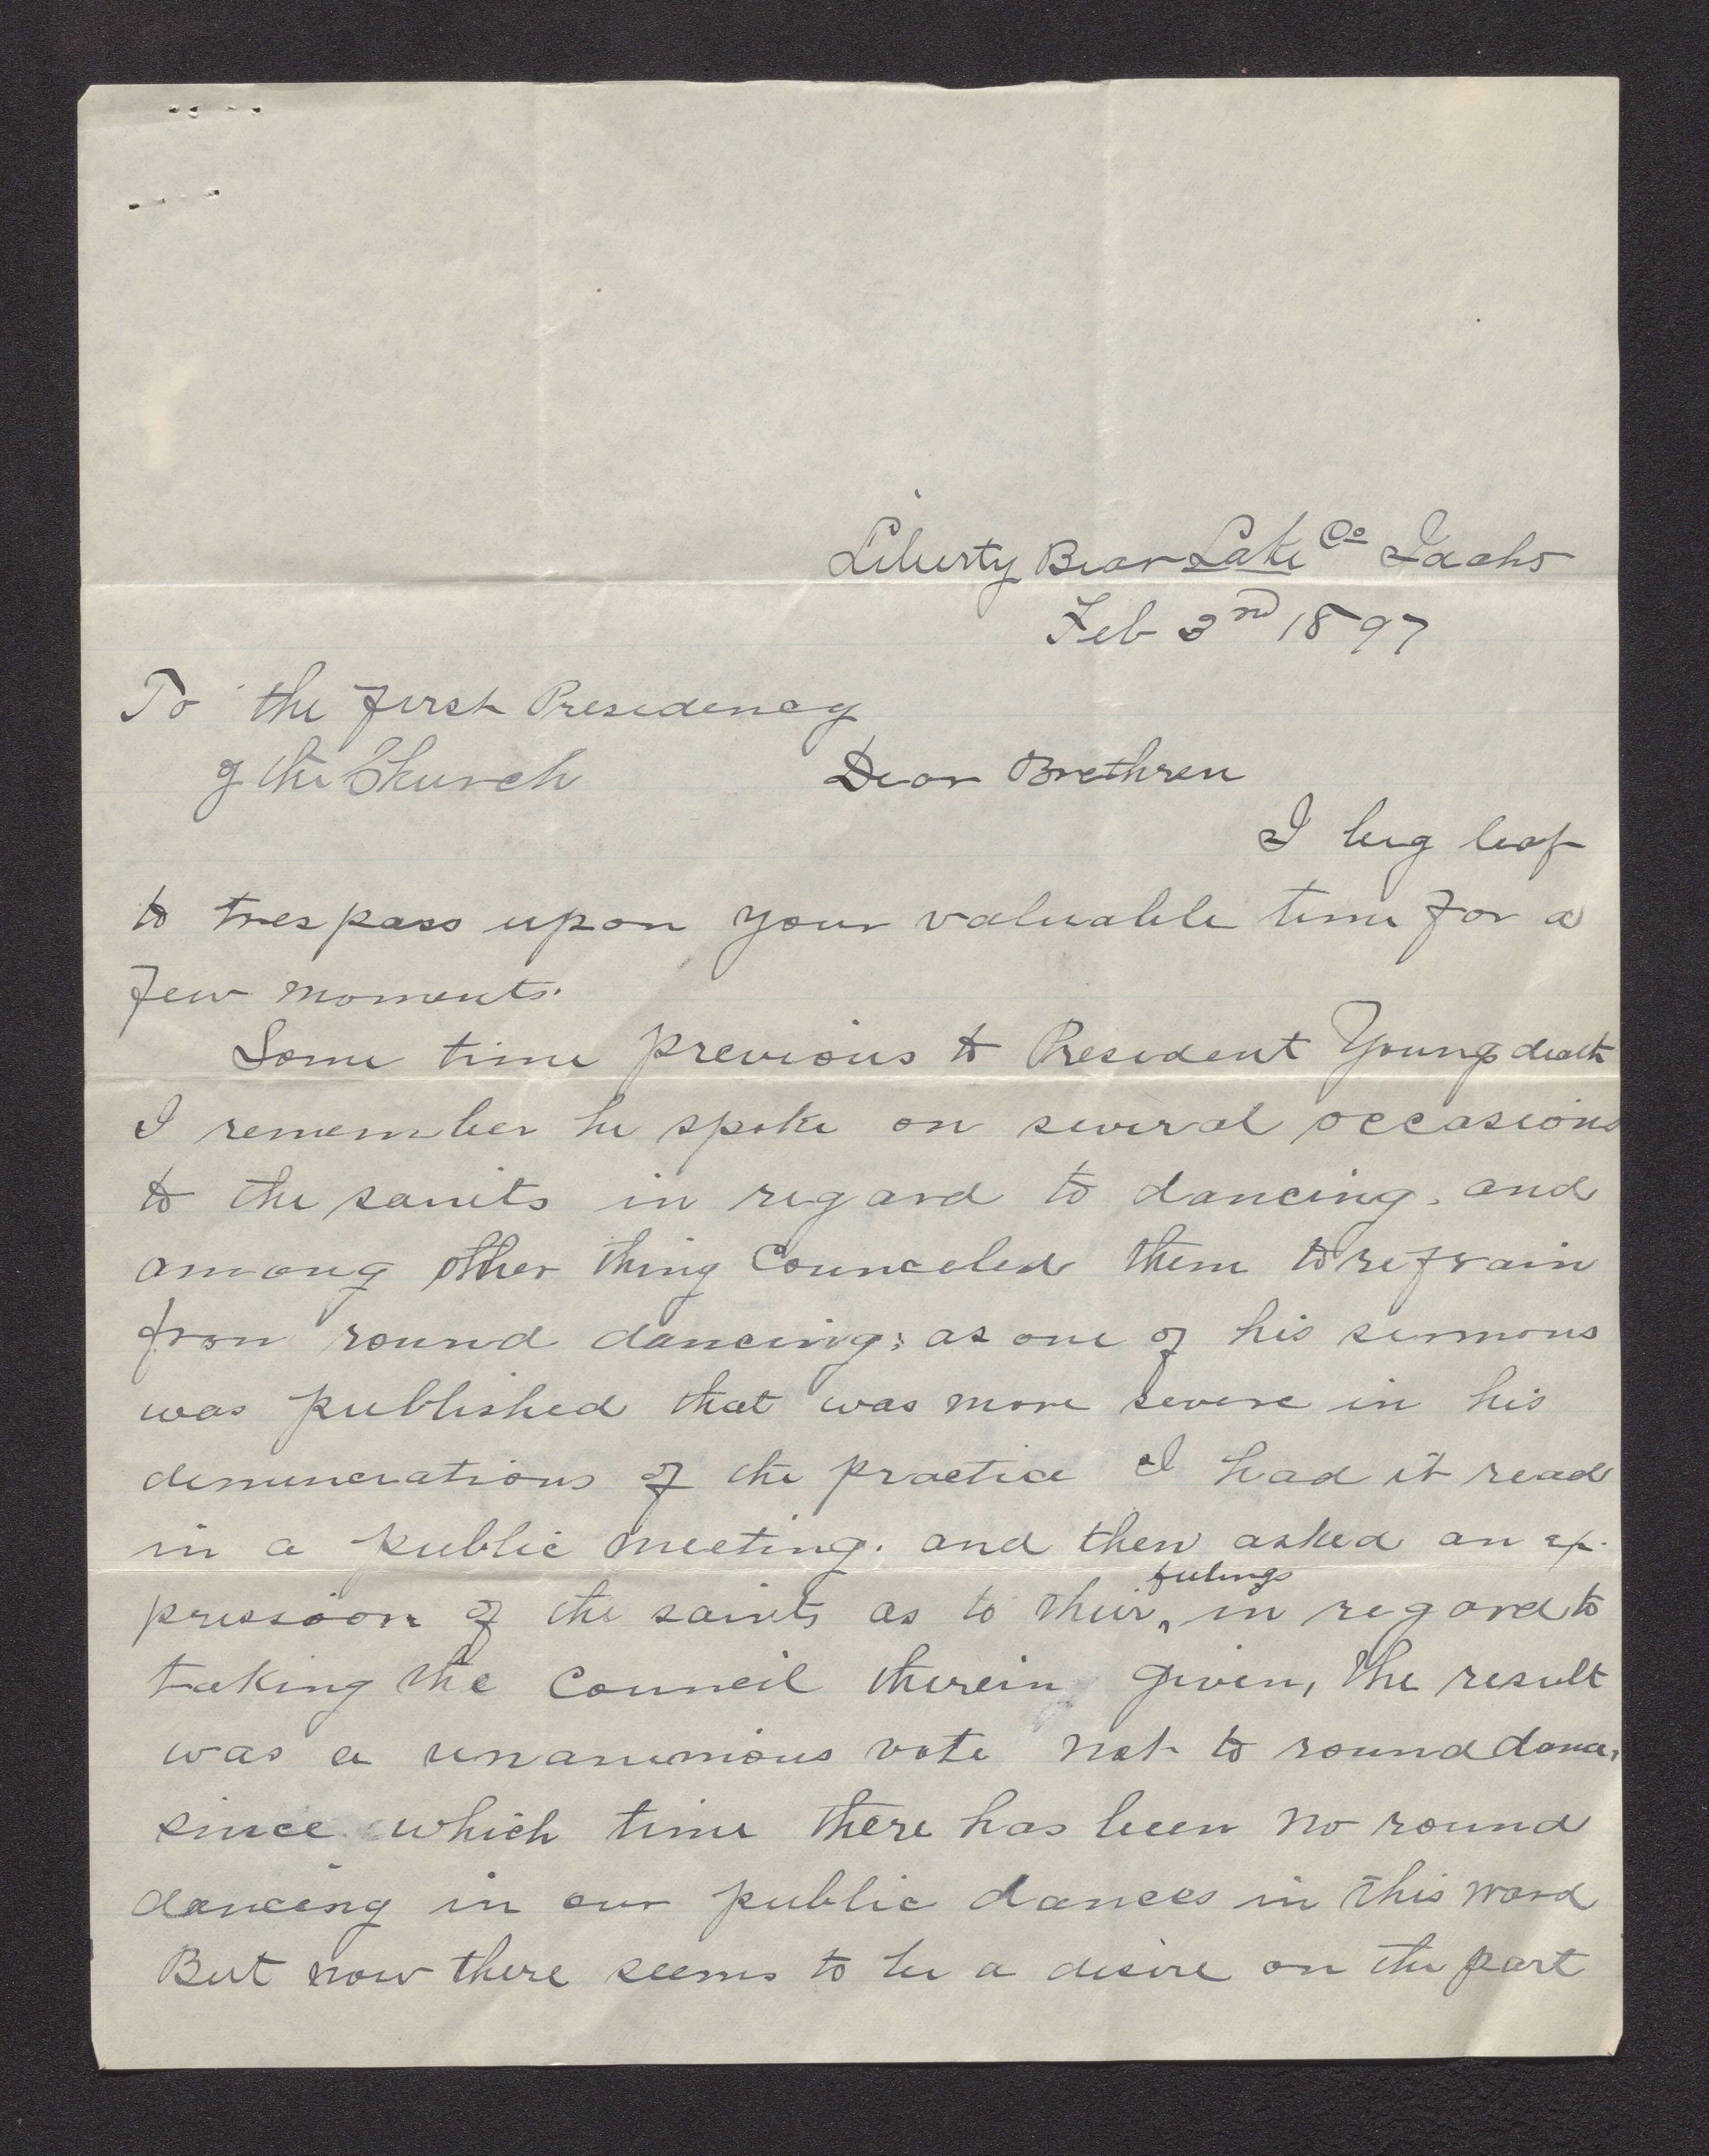 Liberty Bear Lake Co Idaho
Feb 3rd 1897
To the first Presidency
of the Church Dear Brethren
I beg leaf
to trespass upon your valuable time for a
few moments.
Some time previous to President Youngs death
I remember he spoke on several occasions
to the sanits in regard to dancing, and
among other thing Counceled them to refrain
from round dancing; as one of his sermons
was published that was more severe in his
denunciations of the practice I had it read
in a public meeting. and then asked an ex-
pression of the saints as to their feelings in regard to
taking the Council therein given, the result
was a unanimous vote not to round dance,
since which time there has been no round
dancing in our public dances in this ward
But now there seems to be a desire on the part